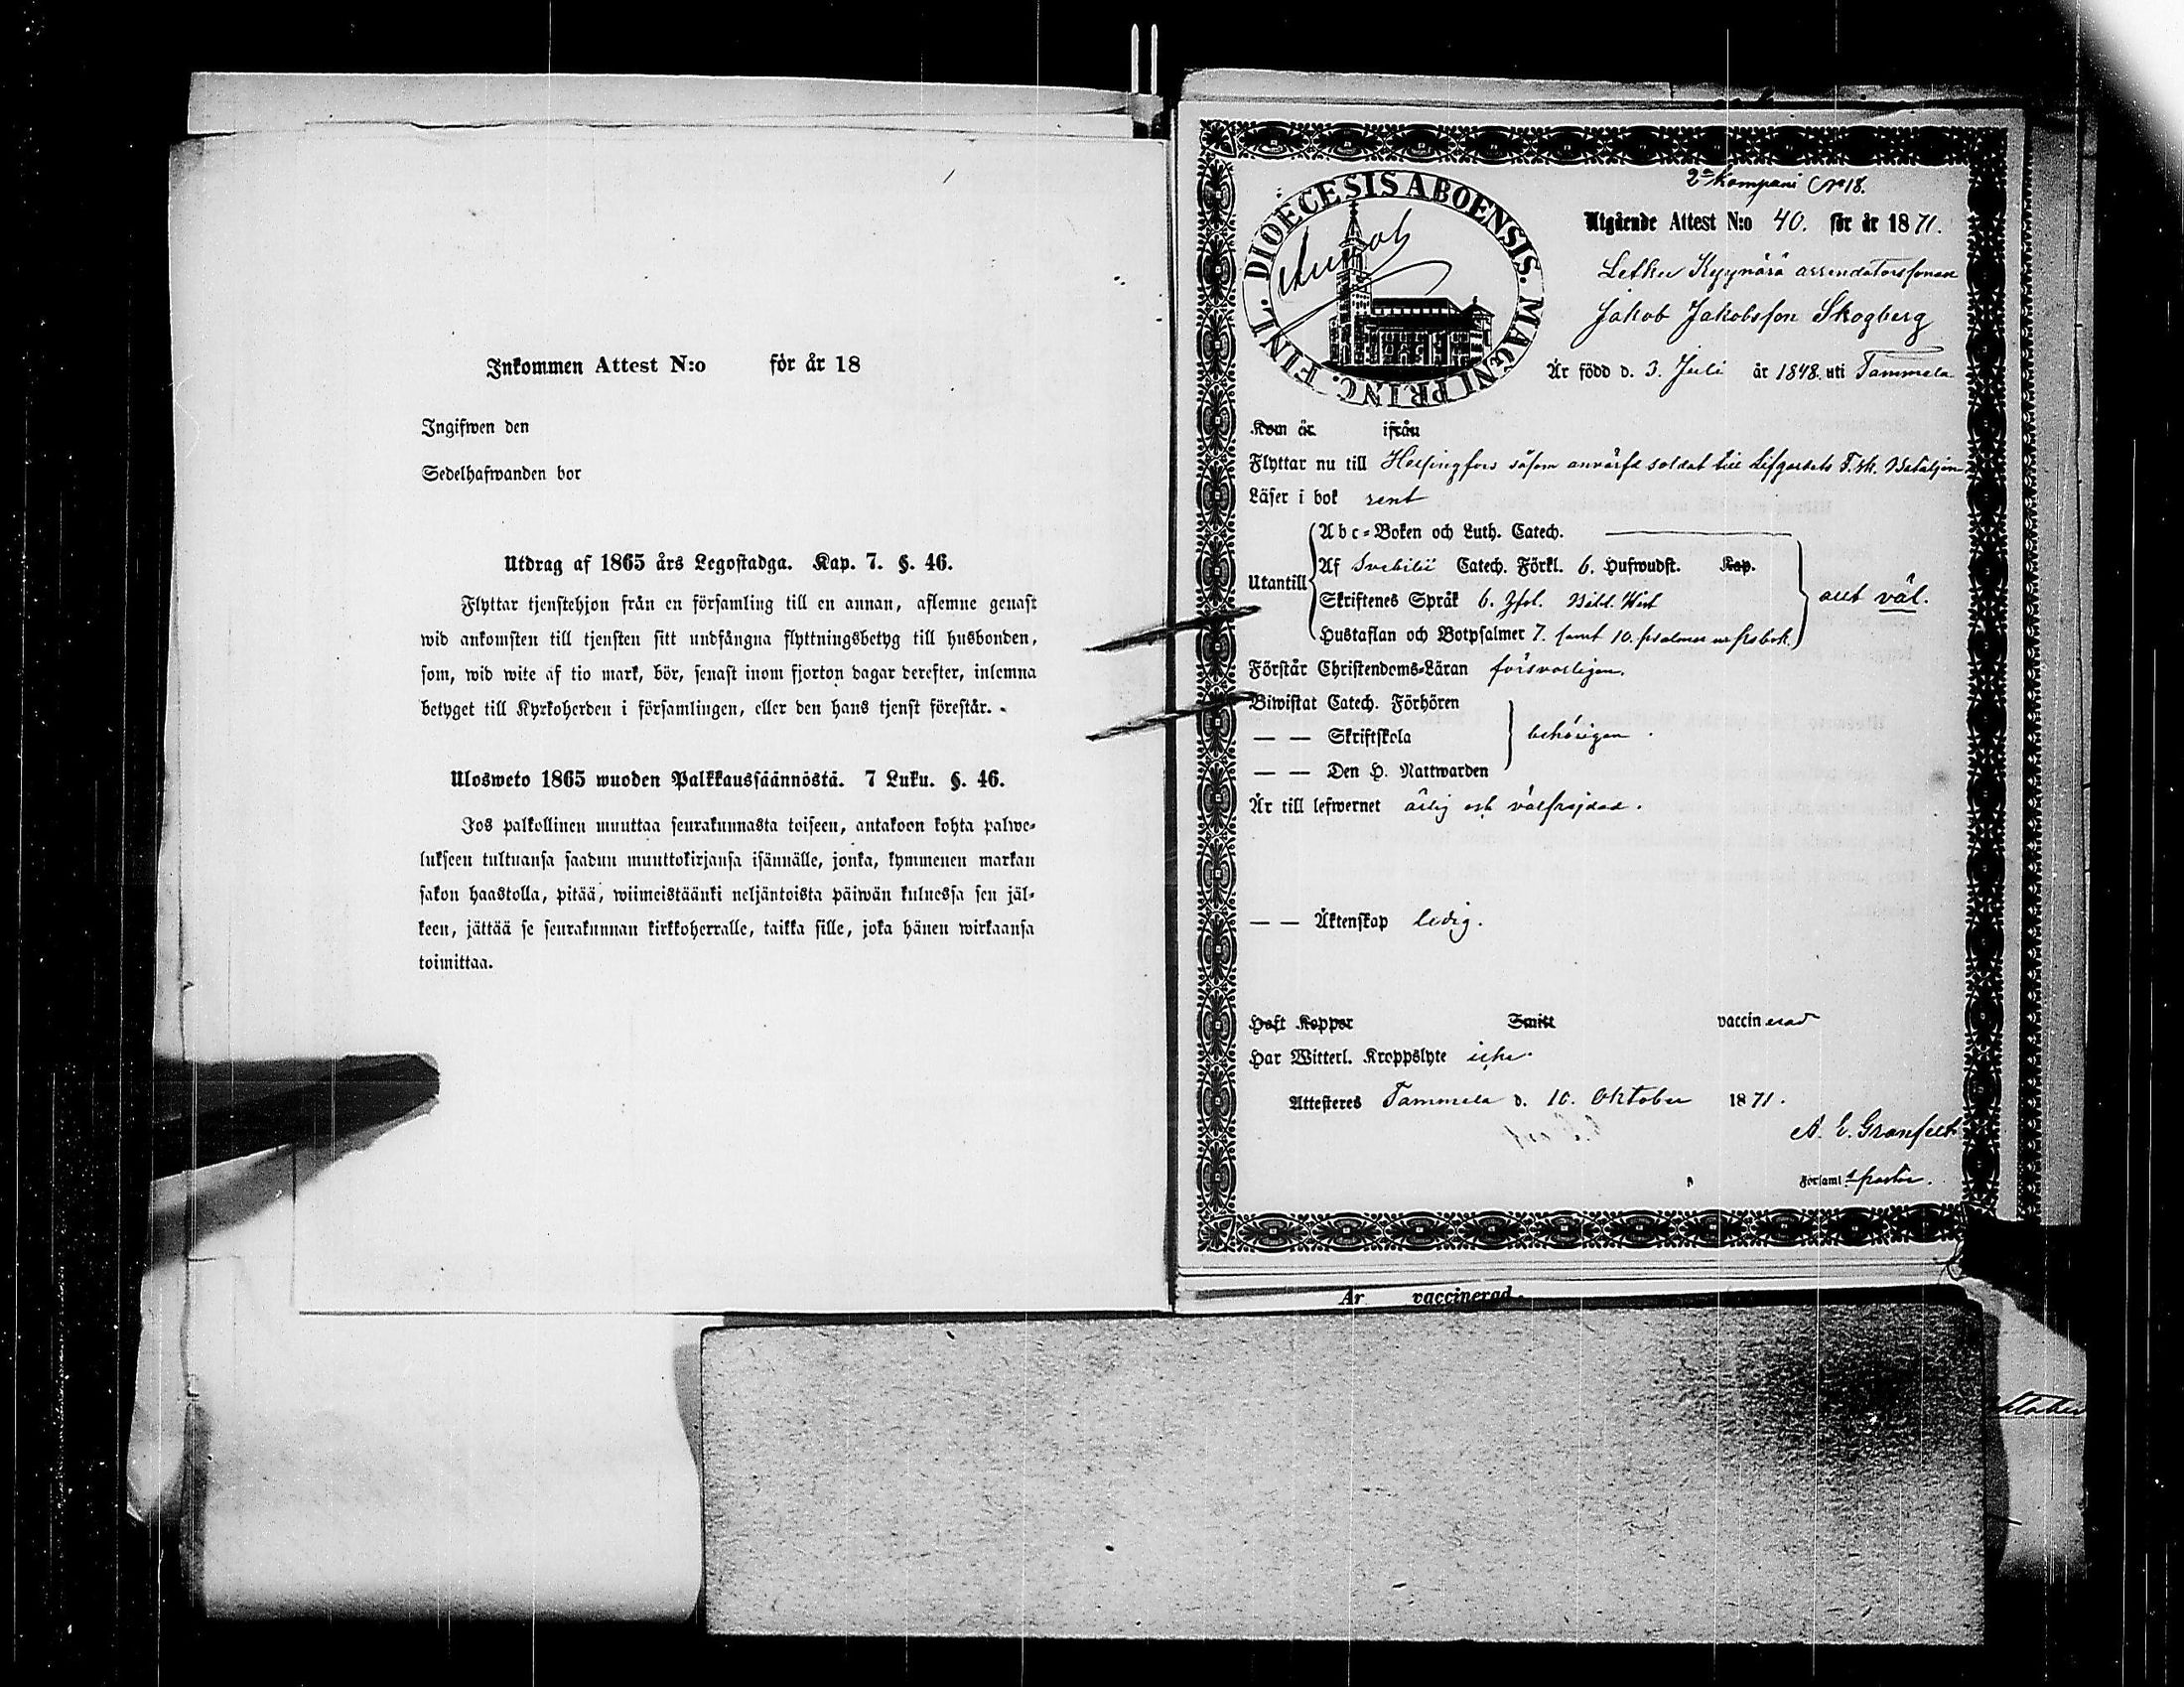 Inkommen Attest N:o för år 18
Ingifwen den
Sedelhafwanden bor
Utdrag af 1865 års Legostadga. Kap. 7. §. 46.
Flyttar tjenstehjon från en församling till en annan, aflemne genast
wid ankomsten till tjensten sitt undfångna flyttningsbetyg till husbonden,
som, wid wite af tio mark, bör, senast inom fjorton dagar derefter, inlemna
betyget till Kyrkoherden i församlingen, eller den hans tjenst förestår.
Ulosweto 1865 wuoden Palkkaussäännöstä. 7 Luku. §. 46.
Jos palkollinen muuttaa seurakunnasta toiseen, antakoon kohta palwe-
lukseen tultuansa saadun muuttokirjansa isännälle, jonka, kymmenen markan
sakon haastolla, pitää, wiimeistäänki neljäntoista päiwän kuluessa sen jäl-
keen, jättää se seurakunnan kirkkoherralle, taikka sille, joka hänen wirkaansa
toimittaa.
2a Kompani No 18.
DIOECESIS ABOENSIS. MAGNI PRINC. FINL.
Utgående Attest N:o 40. för år 1871.
Letku Kyynärä arrendatorssonen
Jakob Jakobsson Skogberg
Är född d. 3. Juli år 1848. uti Tammela
Kom år ifrån
Flyttar nu till Helsingfors såsom anvärfd soldat till Lifgardets F. sk. Bataljon
Läser i bok rent
Abc-Boken och Luth. Catech.
Utantill
Af Svebilii Catech. Förkl. 6. Hufwudst. Kap.
Skriftenes Språk 6. Bibl. Hist
allt väl.
Hustaflan och Botpsalmer 7. samt 10. psalmer ur psbok.
Förstår Christendoms-Läran försvarligen.
Biwistat Catech. Förhören
— — Skriftskola
behörigen.
— — Den H. Nattwarden
Är till lefwernet ärlig och välfrejdad.
— — Äktenskap ledig.
Haft Koppor Smitt vaccinerad
Har Witterl. Kroppslyte icke.
Attesteres Tammela d. 10. Oktober 1871.
A. E. Granfelt
Församl. pastor.
År vaccinerad.